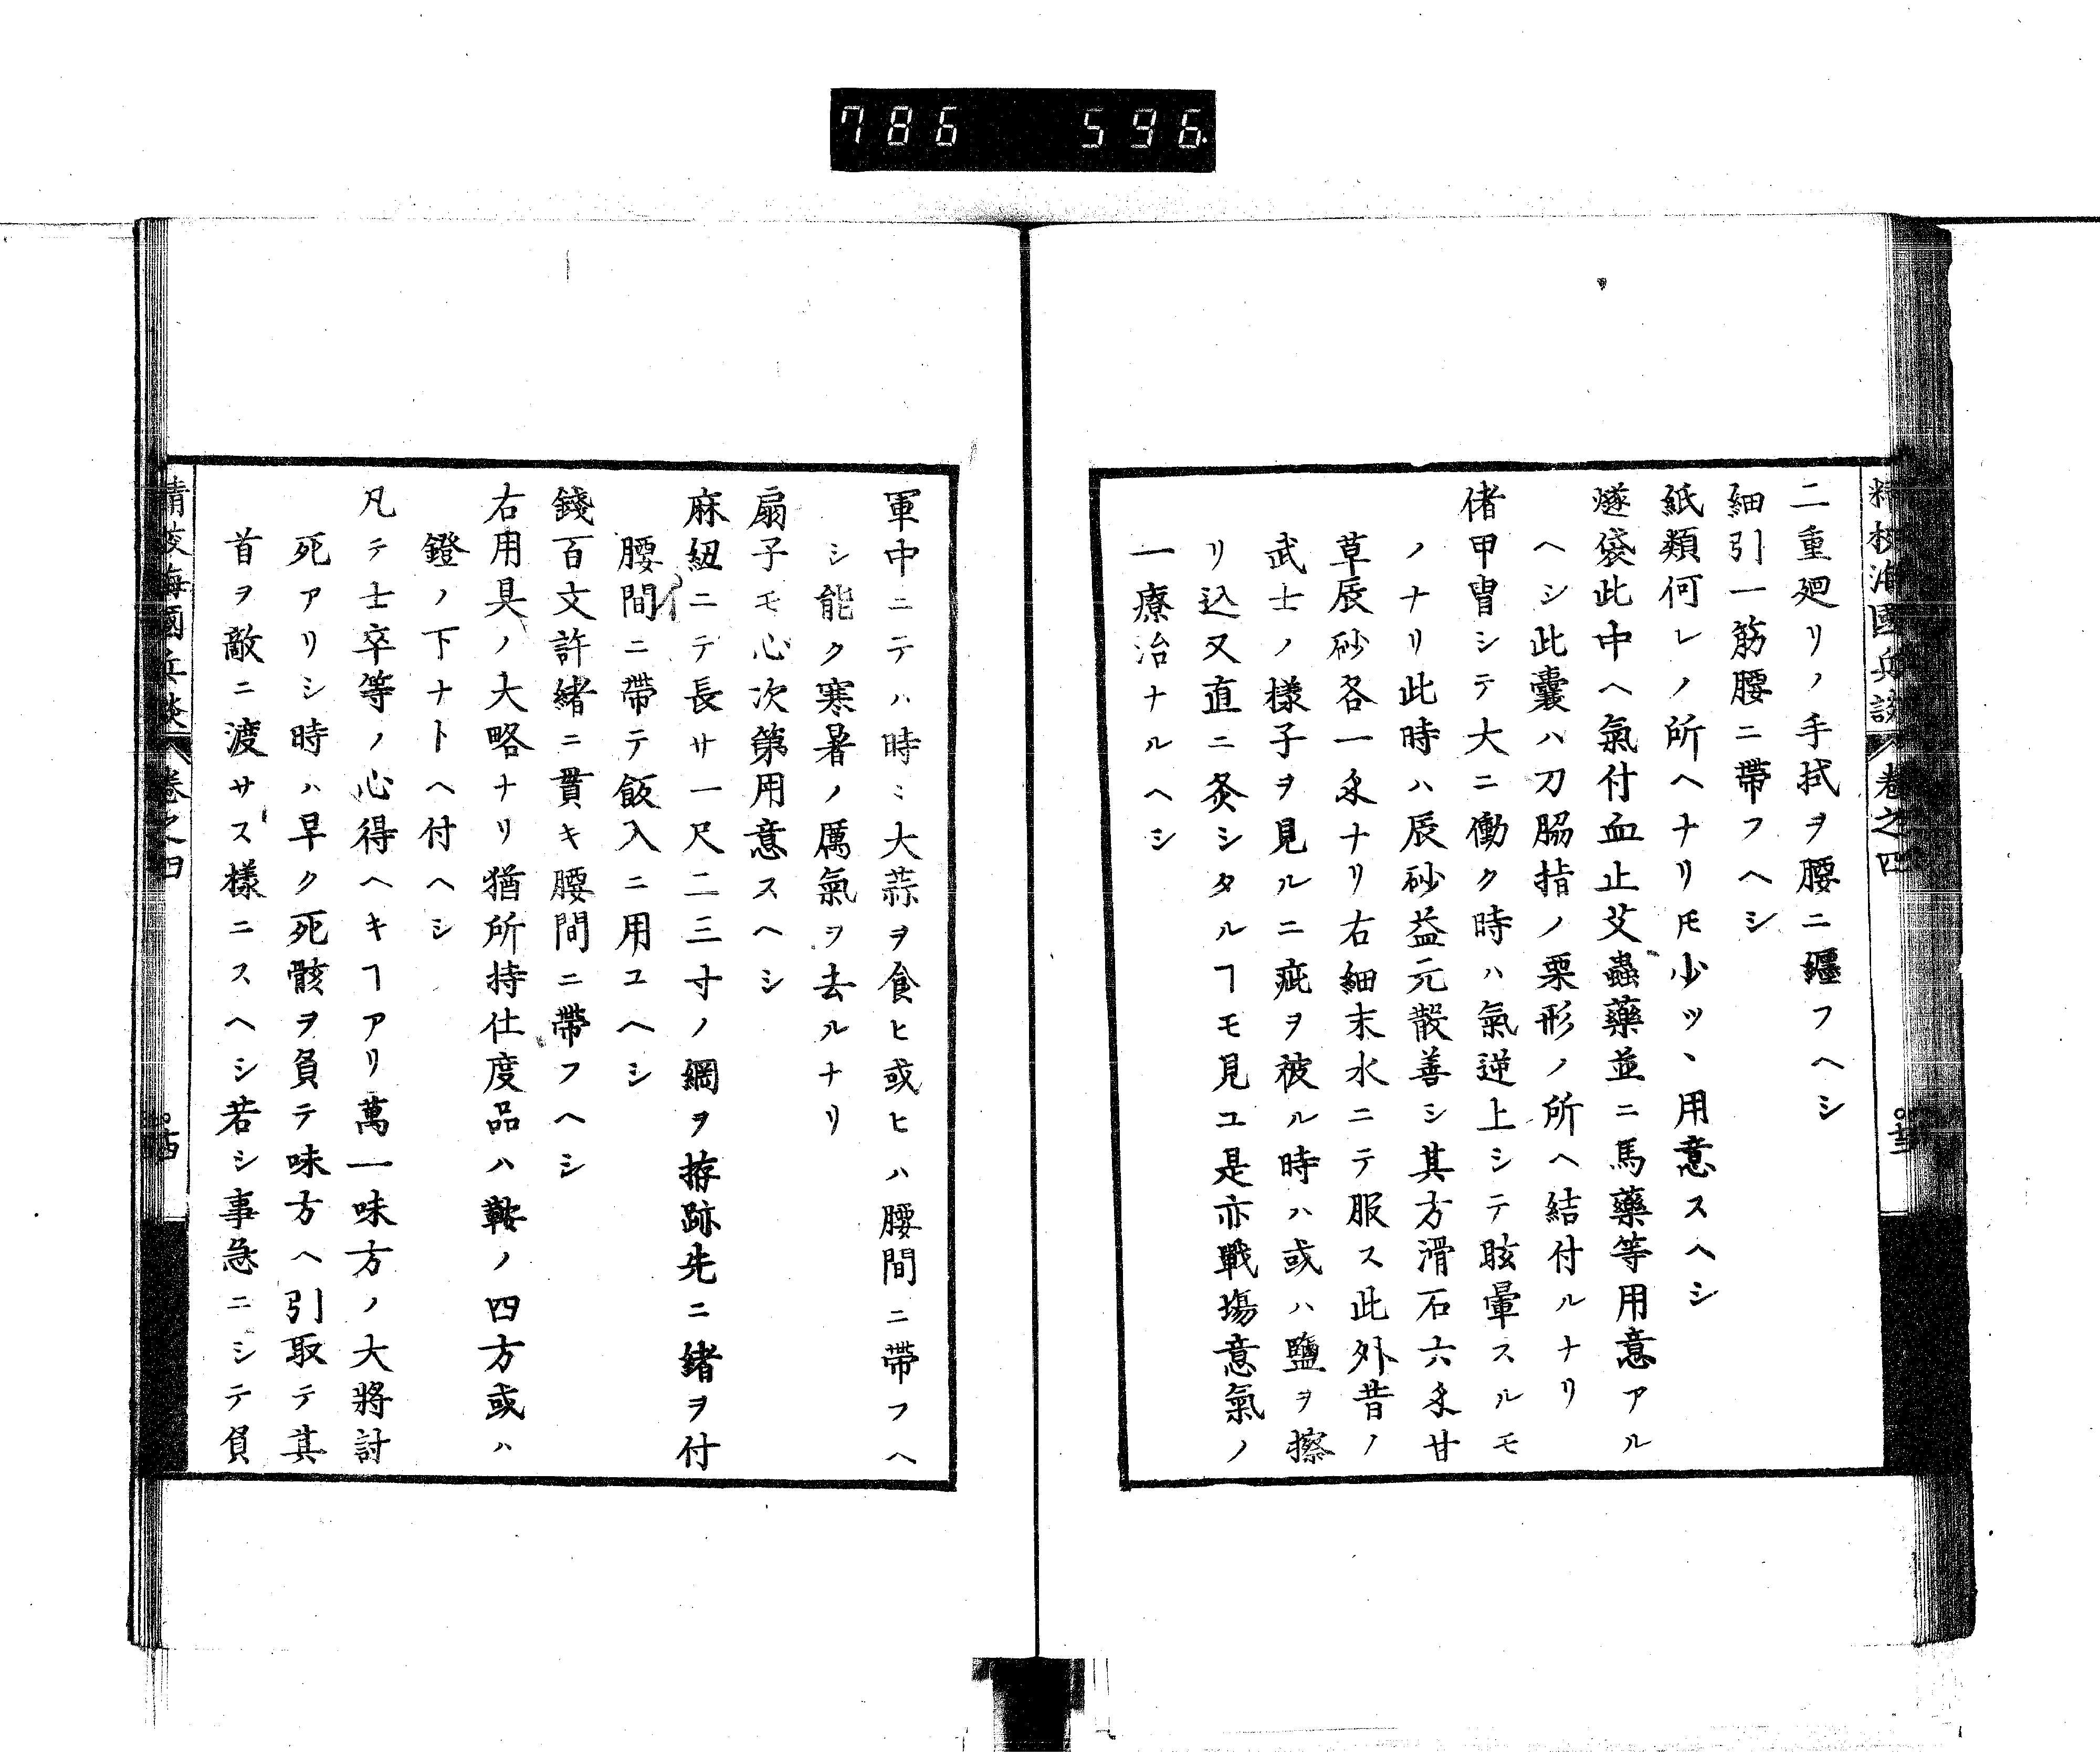 786 596
精校海國兵談 卷之四
二重廻リノ手拭ヲ腰ニ纒フヘシ
細引一筋腰ニ帶フヘシ
紙類何レノ所ヘナリ𪜈少ツヽ用意スヘシ
燧袋此中ヘ氣付血止艾蟲藥並ニ馬藥等用意アル
ヘシ此囊ハ刀脇指ノ栗形ノ所ヘ結付ルナリ
偖甲冑シテ大ニ働ク時ハ氣逆上シテ眩暈スルモ
ノナリ此時ハ辰砂益元散善シ其方滑石六匁甘
草辰砂各一匁ナリ右細末水ニテ服ス此外昔ノ
武士ノ樣子ヲ見ルニ疵ヲ被ル時ハ或ハ鹽ヲ擦
リ込又直ニ灸シタルヿモ見ユ是亦戰塲意氣ノ
一療治ナルヘシ
軍中ニテハ時〻大蒜ヲ食ヒ或ヒハ腰間ニ帶フヘ
シ能ク寒暑ノ厲氣ヲ去ルナリ
扇子モ心次第用意スヘシ
麻紐ニテ長サ一尺二三寸ノ網ヲ拵跡先ニ緖ヲ付
腰間ニ帶テ飯入ニ用ユヘシ
錢百文許緖ニ貫キ腰間ニ帶フヘシ
右用具ノ大略ナリ猶所持仕度品ハ鞍ノ四方或ハ
鐙ノ下ナトヘ付ヘシ
凡テ士卒等ノ心得ヘキヿアリ萬一味方ノ大將討
死アリシ時ハ早ク死骸ヲ負テ味方ヘ引取テ其
首ヲ敵ニ渡サス樣ニスヘシ若シ事急ニシテ負
精校海國兵談 卷之四